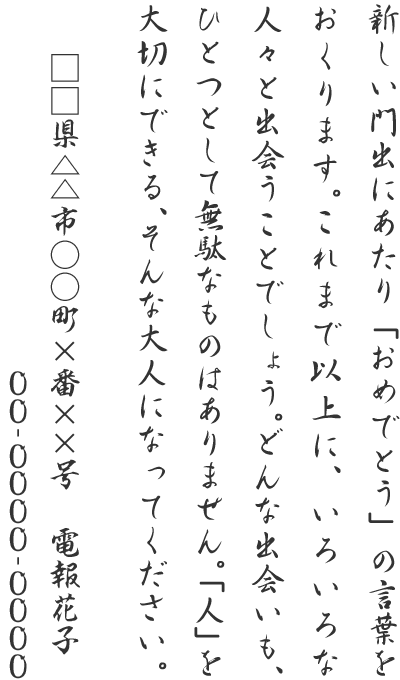 新しい門出にあたり「おめでとう」の言葉を
おくります。これまで以上に、いろいろな
人々と出会うことでしょう。どんな出会いも、
ひとつとして無駄なものはありません。「人」を
大切にできる、そんな大人になってください。
□□県△△市○○町××番××号　電報花子
00-0000-0000